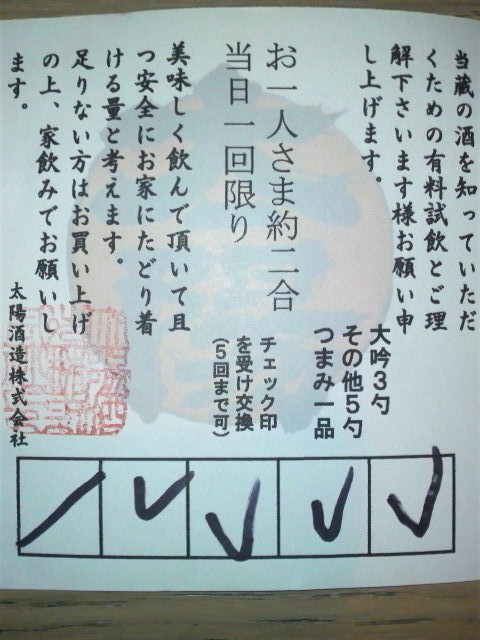 当蔵の酒を知っていただ
くための有料試飲とご理
解下さいます様お願い申
し上げます。
お一人さま約二合
当日一回限り
美味しく飲んで頂いて且
つ安全にお家にたどり着
ける量と考えます。
足りない方はお買い上げ
の上、家飲みでお願いし
ます。
大吟3勺
その他5勺
つまみ一品
チェック印
を受け交換
(5回まで可)
太陽酒造株式会社